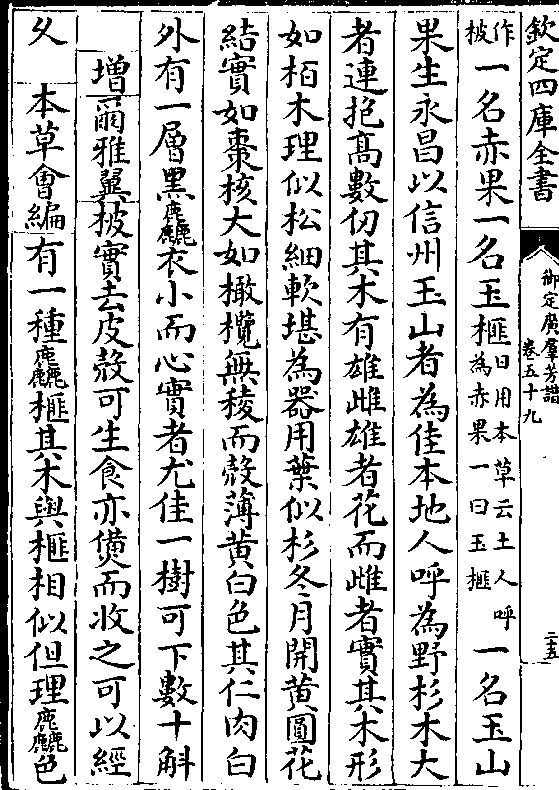 欽定四庫全書
御定廣羣芳譜
卷五十九
二十五
作柀一名赤果一名玉榧日用本草云土人呼為赤果一曰玉榧一名玉山
果生永昌以信州玉山者為佳本地人呼為野杉木大
者連抱髙數仞其木有雄雌雄者花而雌者實其木形
如栢木理似松細軟堪為器用葉似杉冬月開黄圓花
結實如棗核大如橄欖無稜而殻薄黄白色其仁肉白
外有一層黒麤衣小而心實者尤佳一樹可下數十斛
增爾雅翼柀實去皮殻可生食亦㷶而收之可以經
久本草會編有一種麤榧其木與榧相似但理麤色